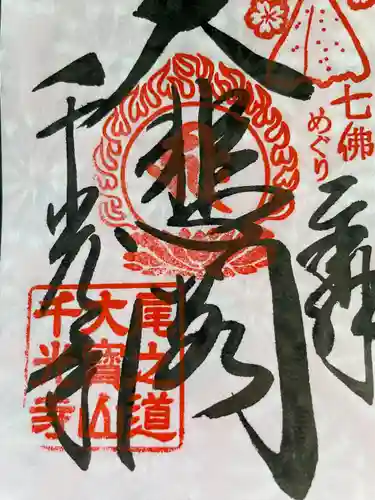 七佛
めぐり
大悲閣
千光寺
尾之道
大寶山
千光寺